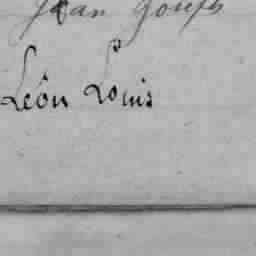 Jean Joseph
Léon Louis